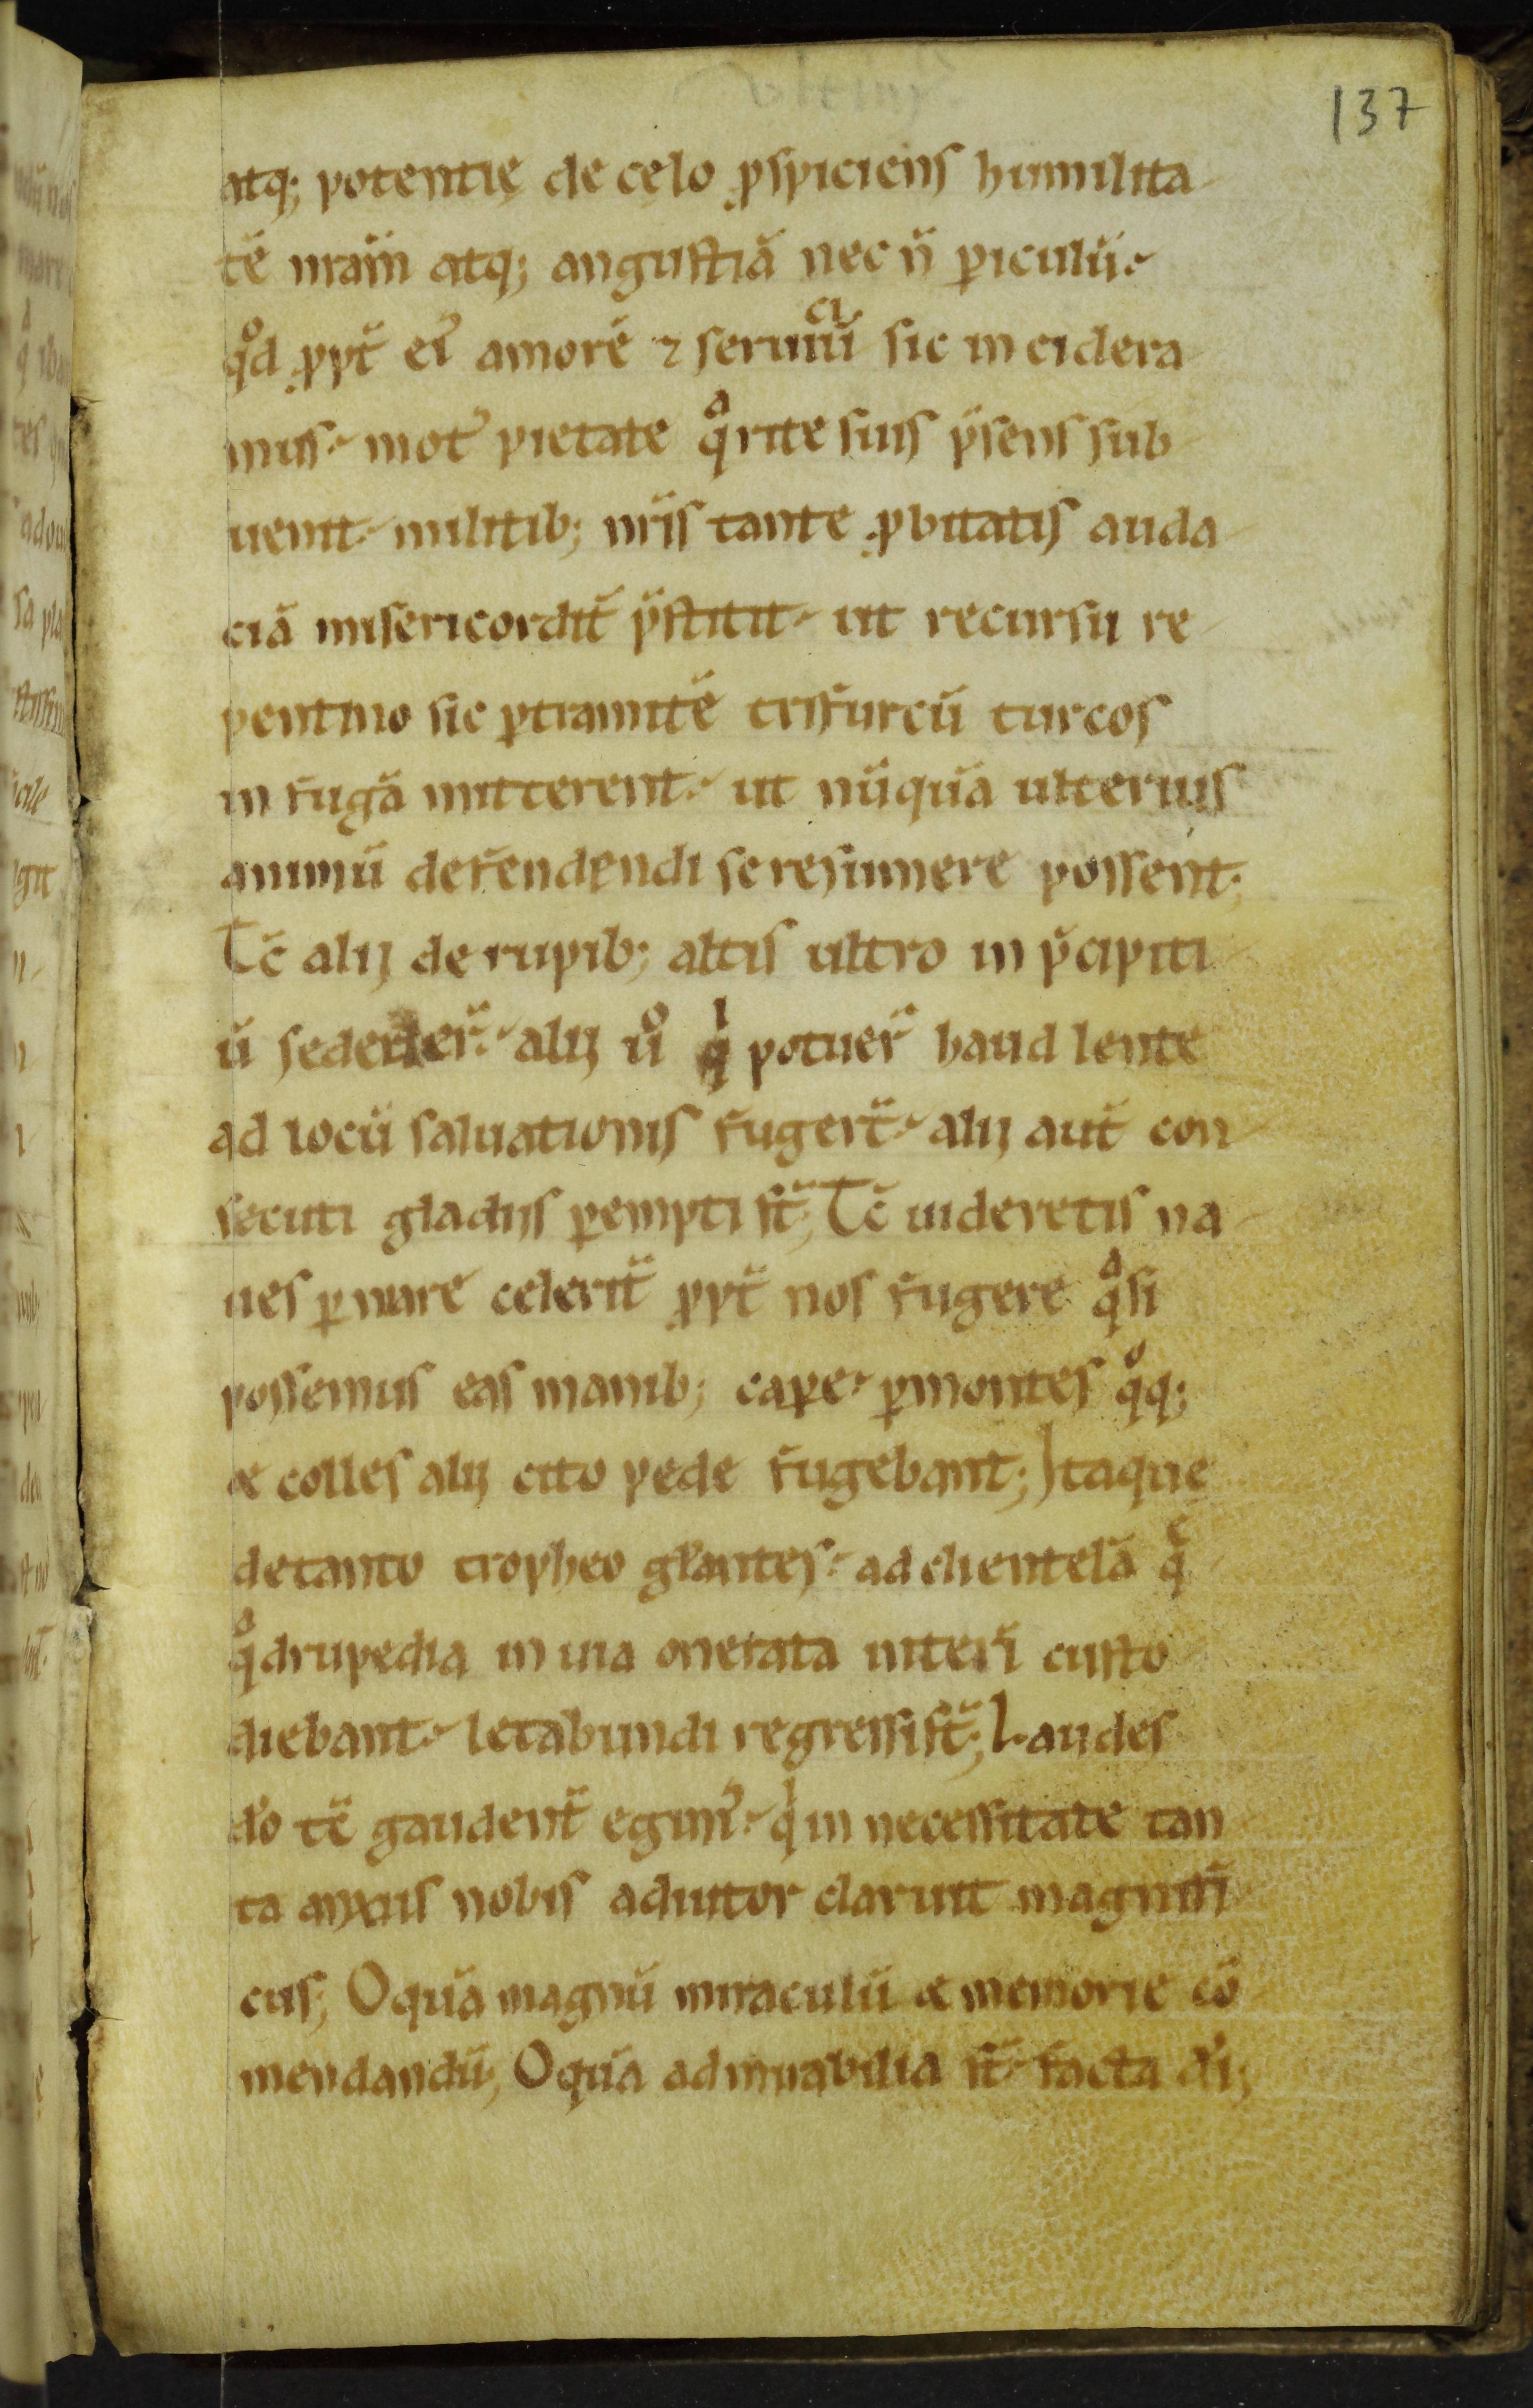 137
atq; potentię de cęlo ꝓspiciens humilita
tē nr̄am atq; angustiā nec n̄ ꝑiculū.
qͦd ꝓpt̄ ei᾽ amorē ⁊ seruiciū sic in cidera
mus. mot᾽ pietate qͣ rite suis p̄sens sub
uenit. militib; nr̄is tante ꝓbitatis auda
ciā misericordit̄ p̄stitit. ut recursu re
pentino sic ꝑ tramitē trifurcū turcos
in fugā mitterent. ut nūquā ulterius
animū defendendi se resumere possent.
Tc̄ alij de rupib; altis ultro in p̄cipiti
ū se deder̄. alij ūo qͥ potuer̄ haud lente
ad locū saluationis fugert̄. alij aut̄ con
secuti gladiis ꝑempti st̄; Tc̄ uideretis na
ues ꝑ mare celerit̄ ꝓpt̄ nos fugere qͣsi
possemus eas manib; caꝑe. ꝑ montes qͦq;
& colles alij cito pede fugebant; Itaque
de tanto tropheo gl̄antes. ad clientelā qͤ
qͣdrupedia in uia onerata interī custo
diebant. letabundi regressi st̄; Laudes
d̄o tē gaudent̄ egim᾽. qͥ in necessitate tan
ta anxiis nobis adiutor claruit magnifi
cus; O quā magnū miraculū & memorie cō
mendandū; O quā admirabilia st̄ facta d̄i;